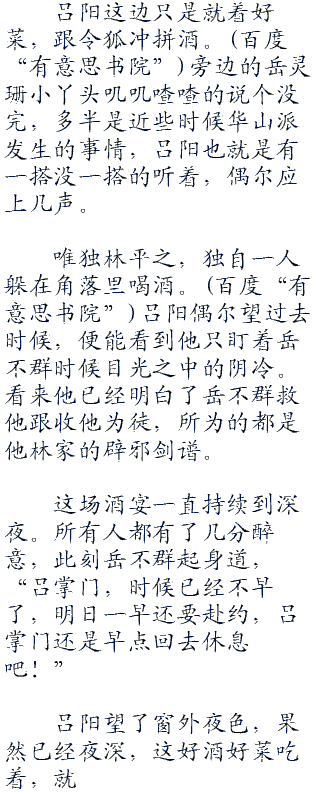 吕阳这边只是就着好
菜，跟令狐冲拼酒。(百度
“有意思书院”)旁边的岳灵
珊小丫头叽叽喳喳的说个没
完，多半是近些时候华山派
发生的事情，吕阳也就是有
一搭没一搭的听着，偶尔应
上几声。
唯独林平之，独自一人
躲在角落里喝酒。(百度“有
意思书院”)吕阳偶尔望过去
时候，便能看到他只盯着岳
不群时候目光之中的阴冷。
看来他已经明白了岳不群救
他跟收他为徒，所为的都是
他林家的辟邪剑谱。
这场酒宴一直持续到深
夜。所有人都有了几分醉
意，此刻岳不群起身道，
“吕掌门，时候已经不早
了，明日一早还要赴约，吕
掌门还是早点回去休息
吧！”
吕阳望了窗外夜色，果
然已经夜深，这好酒好菜吃
着，就